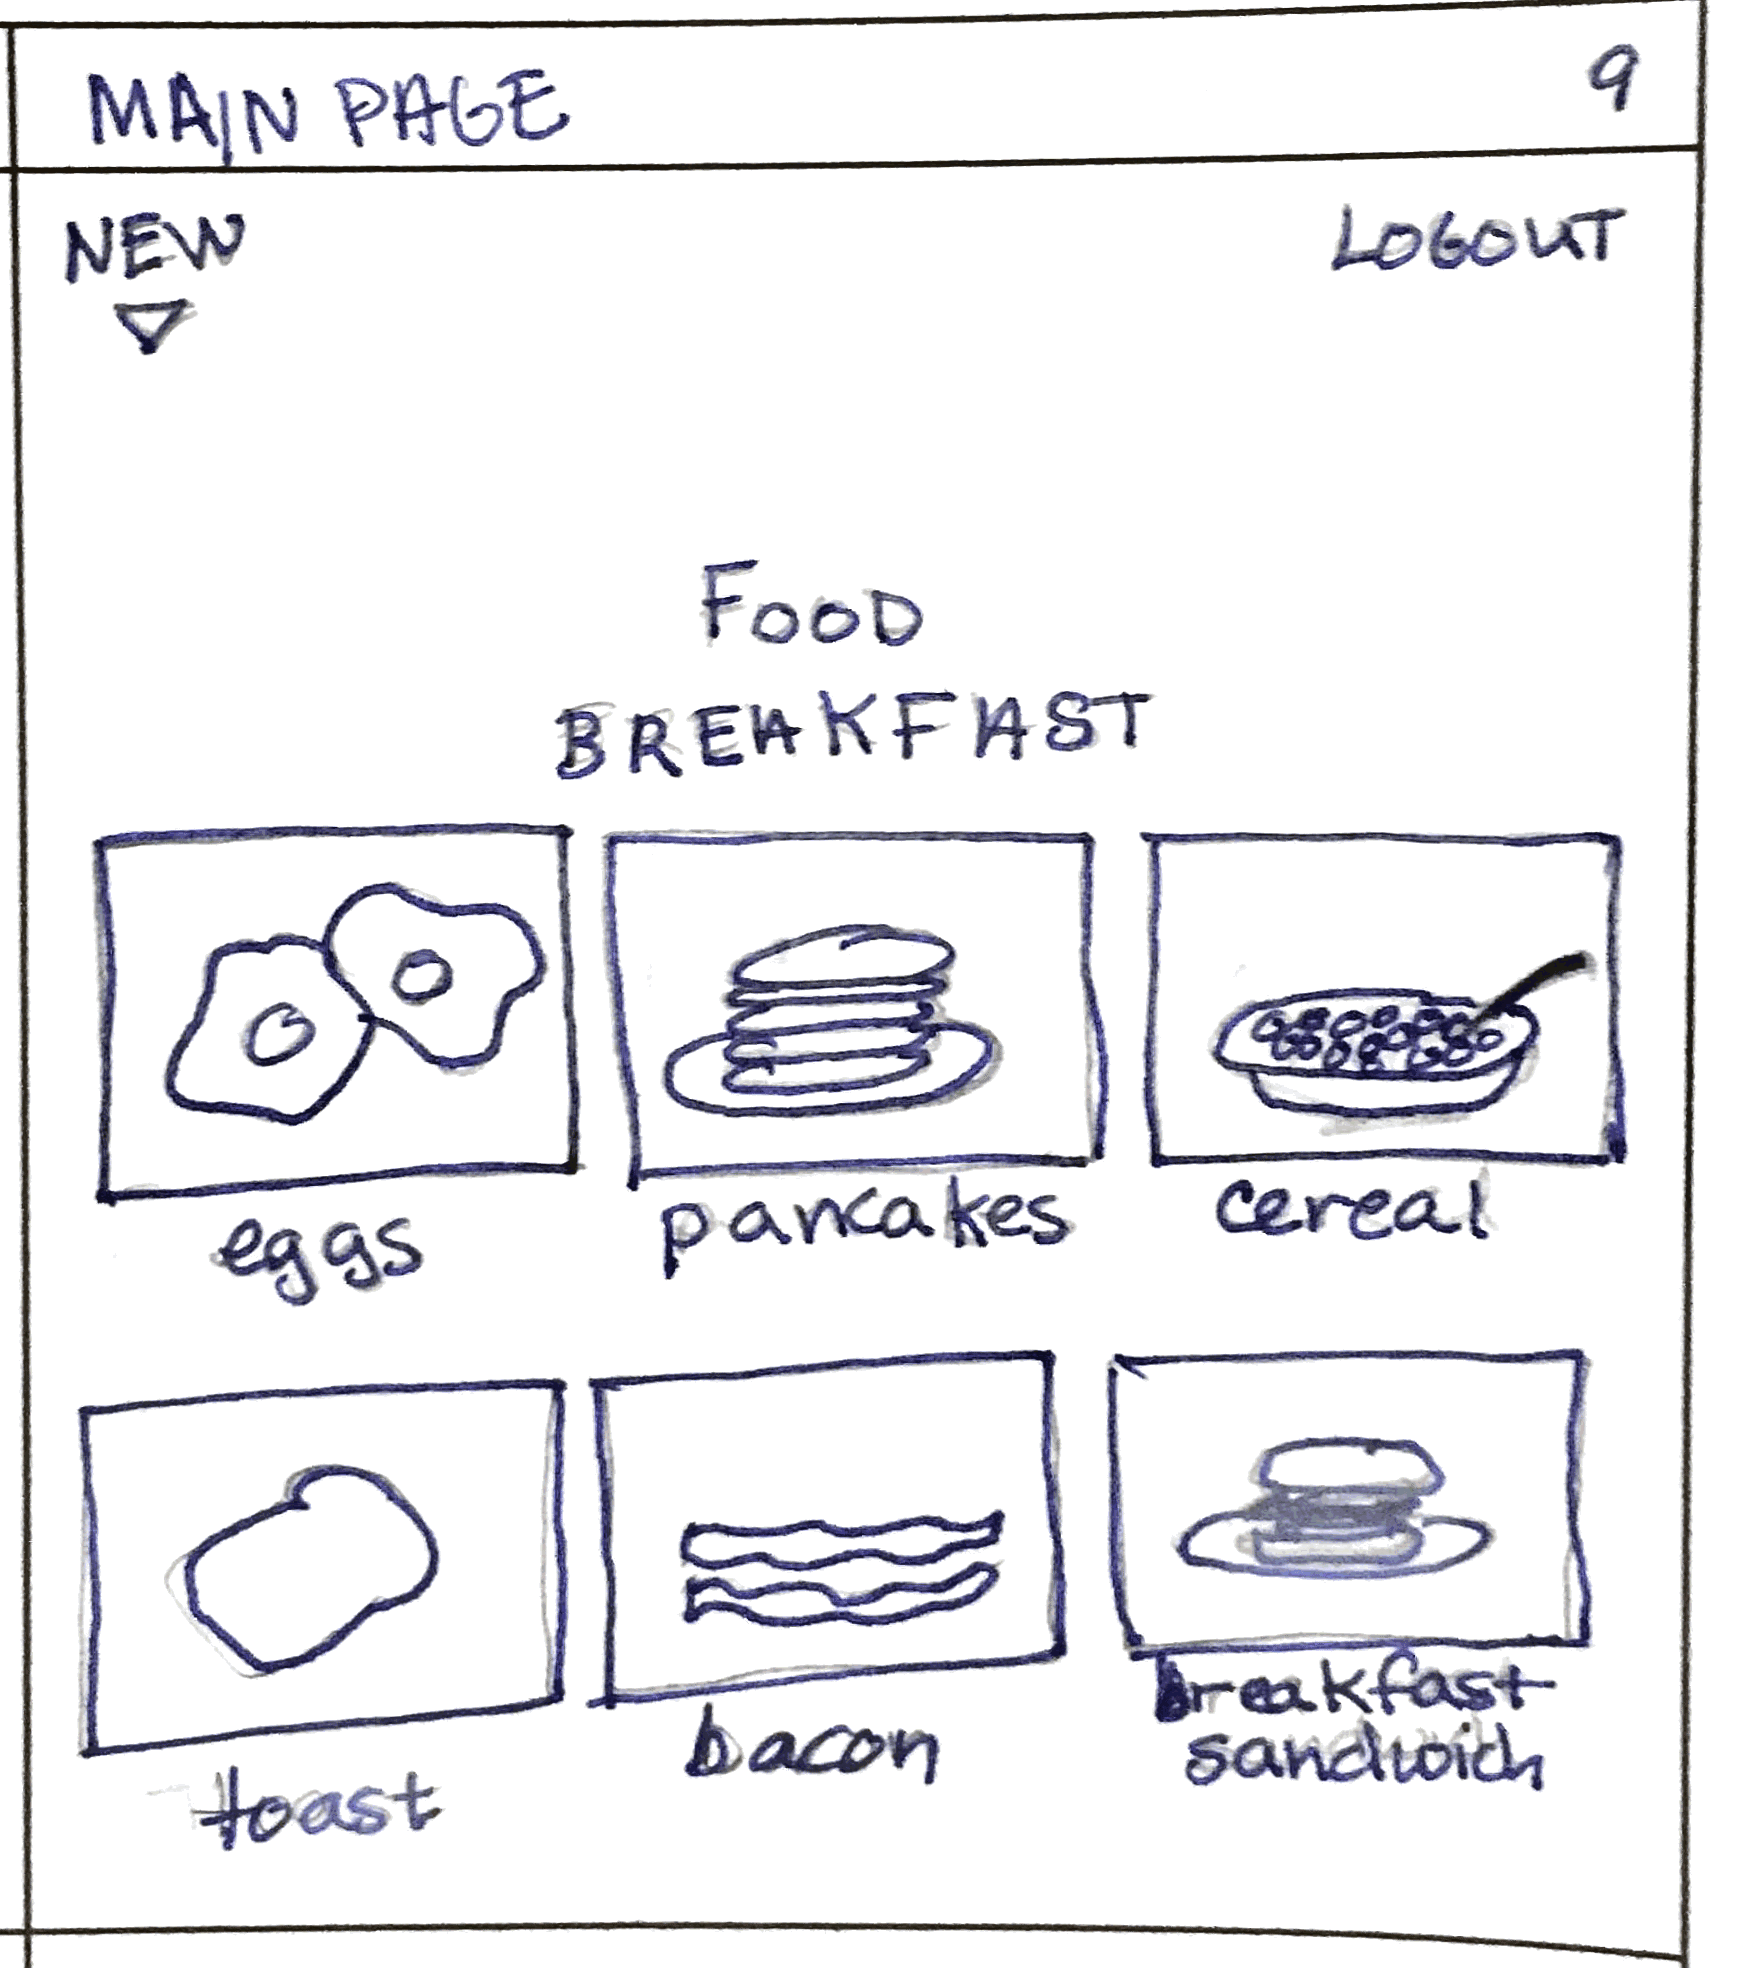 MAIN PAGE 9
NEW LOGOUT
FOOD
BREAKFAST
eggs pancakes cereal
toast bacon breakfast
sandwich